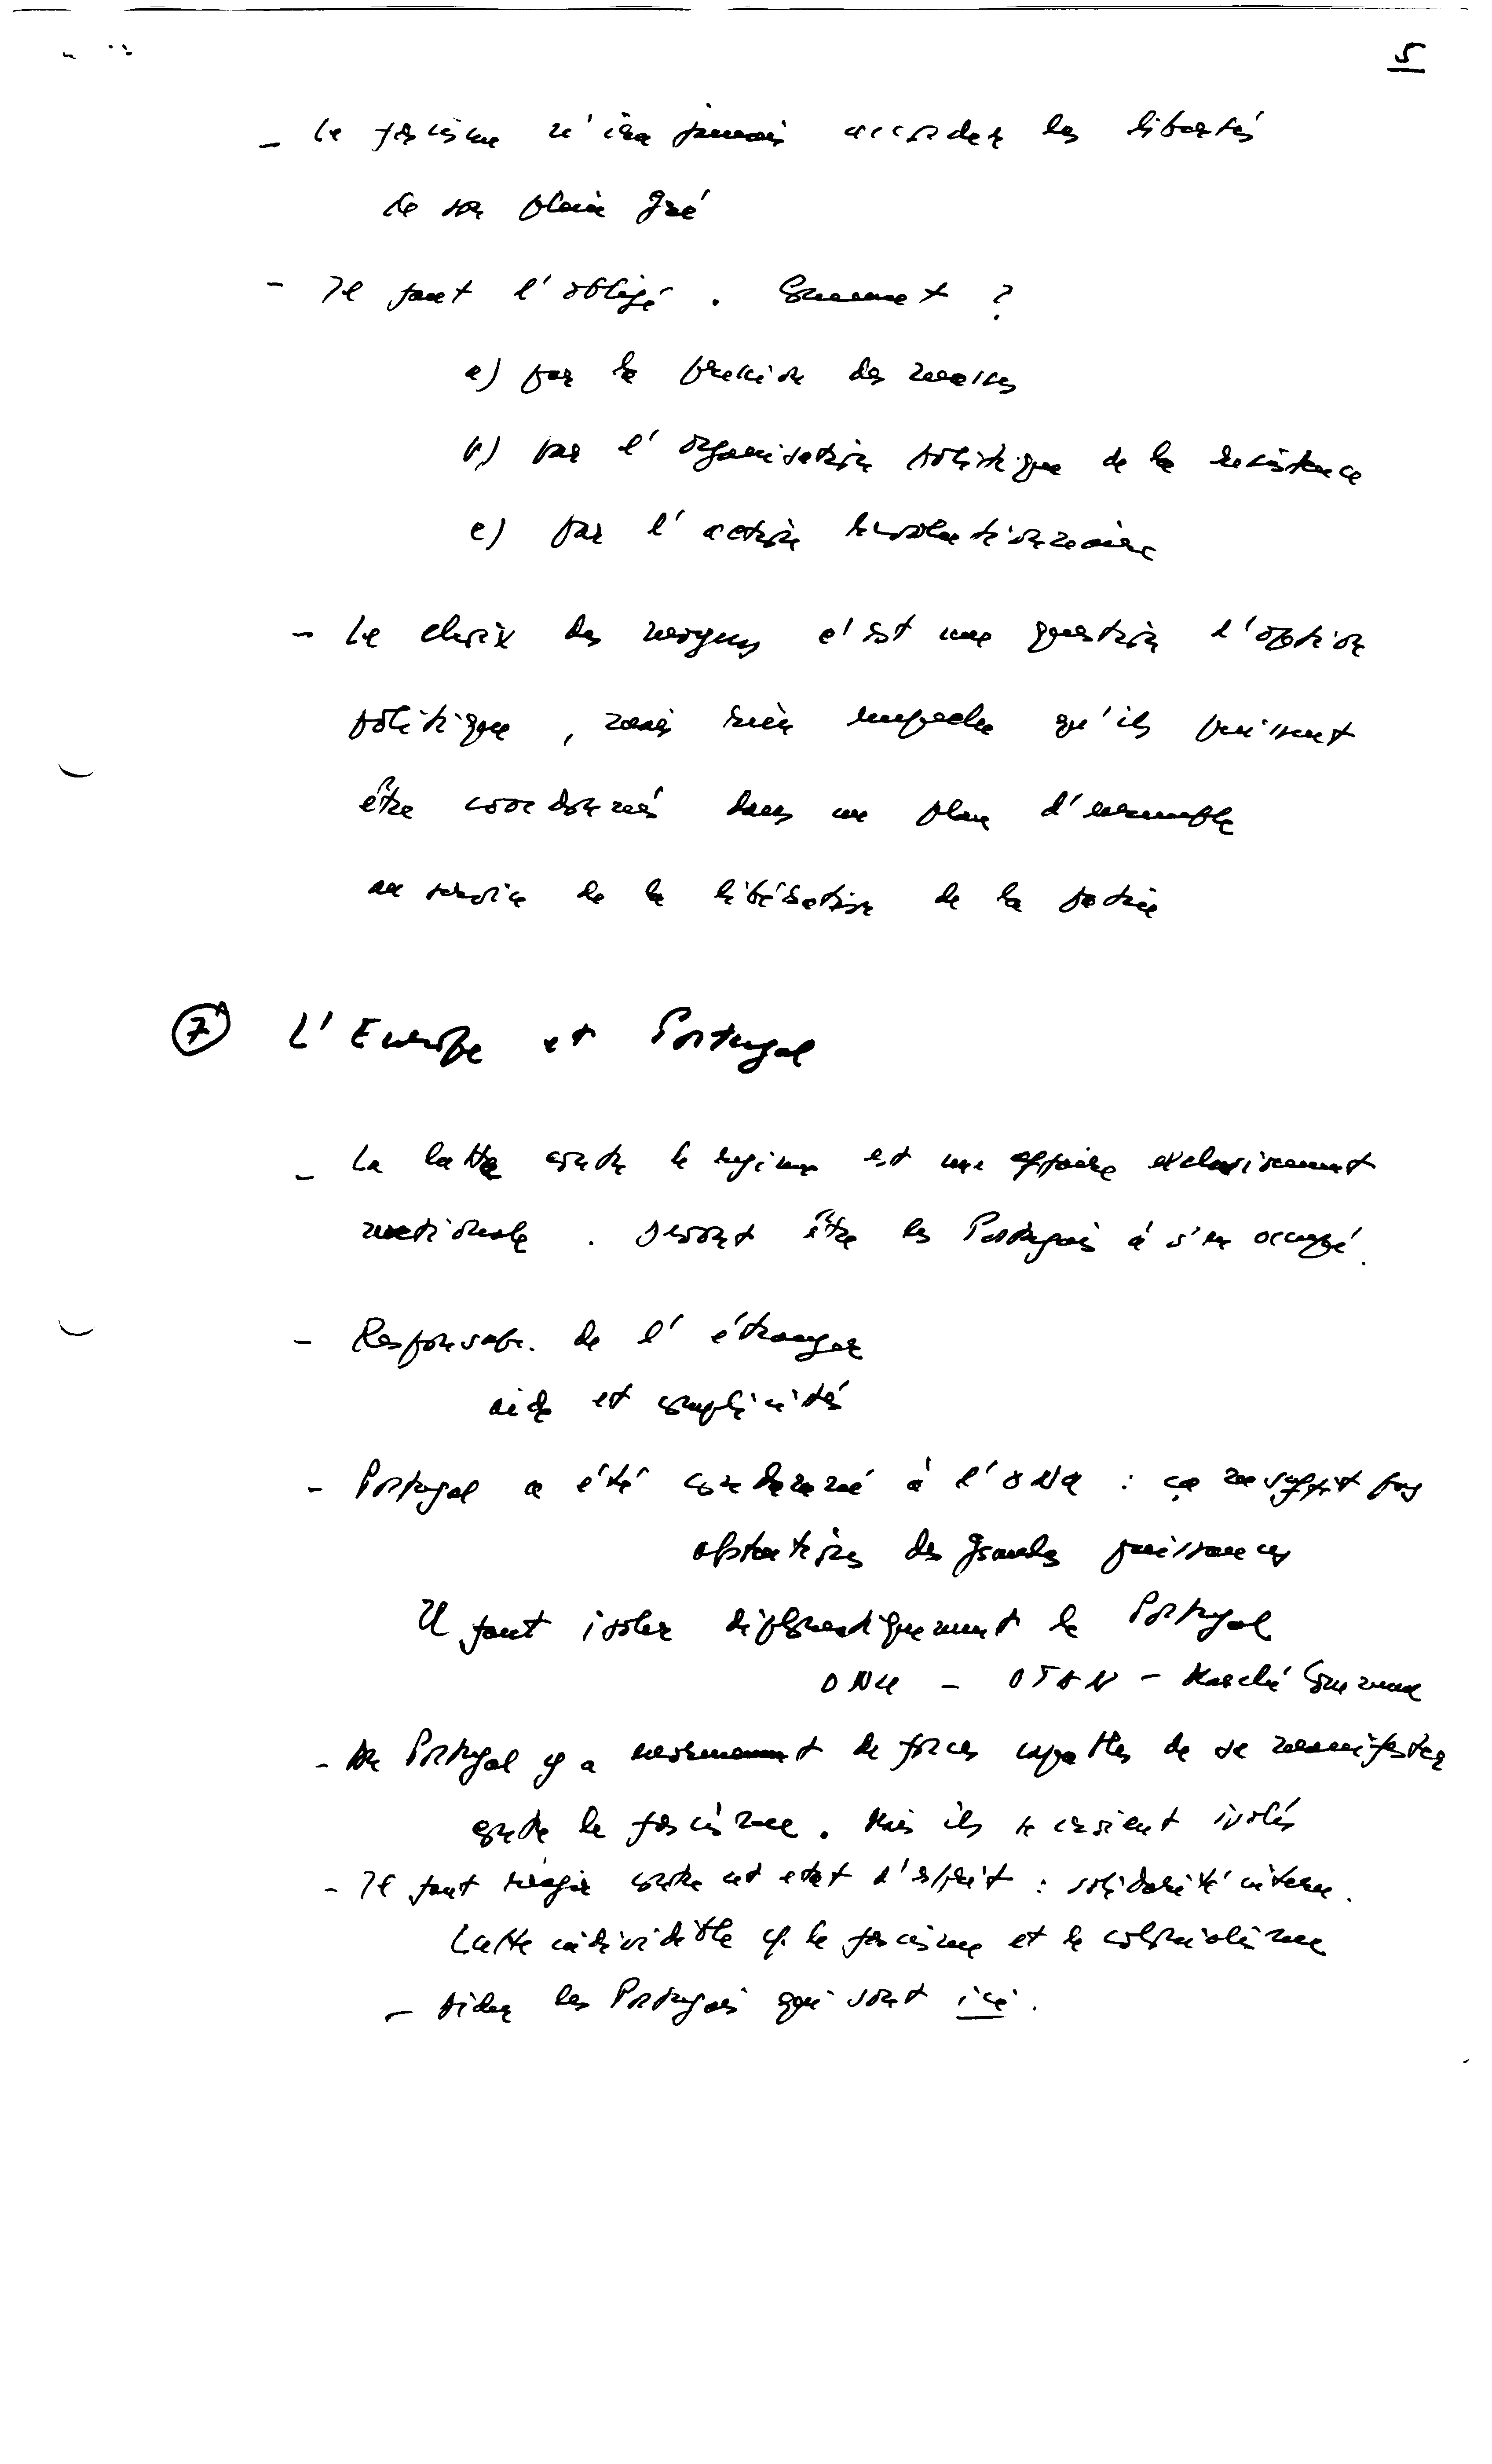 5
- Le fascisme n'ira jamais accorder les libertés
de son plein gré
- Il faut l'obligé. Comment ?
a) par la pression des masses
b) par l'organisation politique de la resistence
c) par l'action revolutionnaire
- Le choix des moyens c'est une question d'option
politique, mais rien empeche qu'ils puissent
être coordonnés dans un plan d'ensemble
au service de la libération de la patrie
7 L'Europe et Portugal
- La lutte contre le regime est une affaire exclusivement
nationale. Devront être les Portugais à s'en occupé.
- Responsab. de l'étranger
aide et complicités
- Portugal a été condamné à l'ONU : ça ne suffit pas
abstentions des grandes puissances
Il faut isoler diplomatiquement le Portugal
ONU - OTAN - Marché Commun
- Au Portugal y a de forces capables de se manifester
contre le fascisme. Mais ils se croient isolés
- Il faut réagir contre cet etat d'esprit : solidarité intern.
Lutte indivisible c/. le fascisme et le colonialisme
- Aider les Portugais qui sont ici.